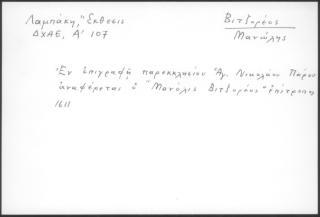 Λαμπάκη, "Έκθεσις
ΔΧΑΕ, Α' 107
Βιτζορέος
Μανώλης
Ἐν ἐπιγραφῇ παρεκκλησίου Ἁγ. Νικολάου Πάρου
ἀναφέρεται ὁ "Μανόλις Βιτζορέος" ἐπίτροπος
1611